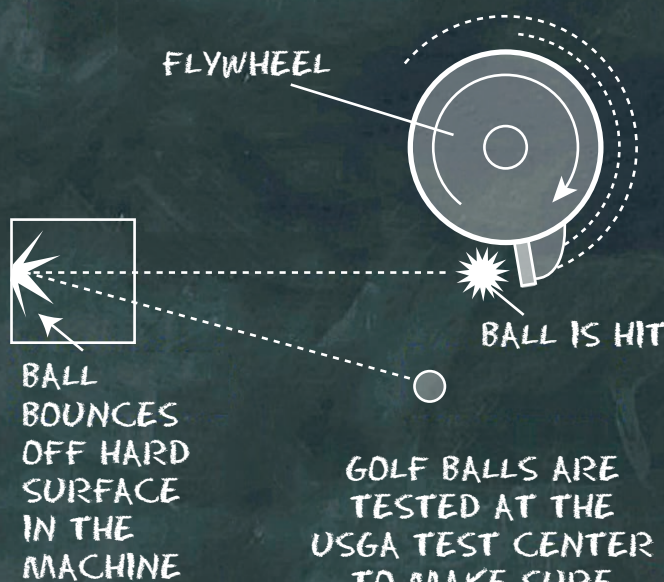 FLYWHEEL
BALL IS HIT
BALL
BOUNCES
OFF HARD
SURFACE
IN THE
MACHINE
GOLF BALLS ARE
TESTED AT THE
USGA TEST CENTER
TO MAKE SURE